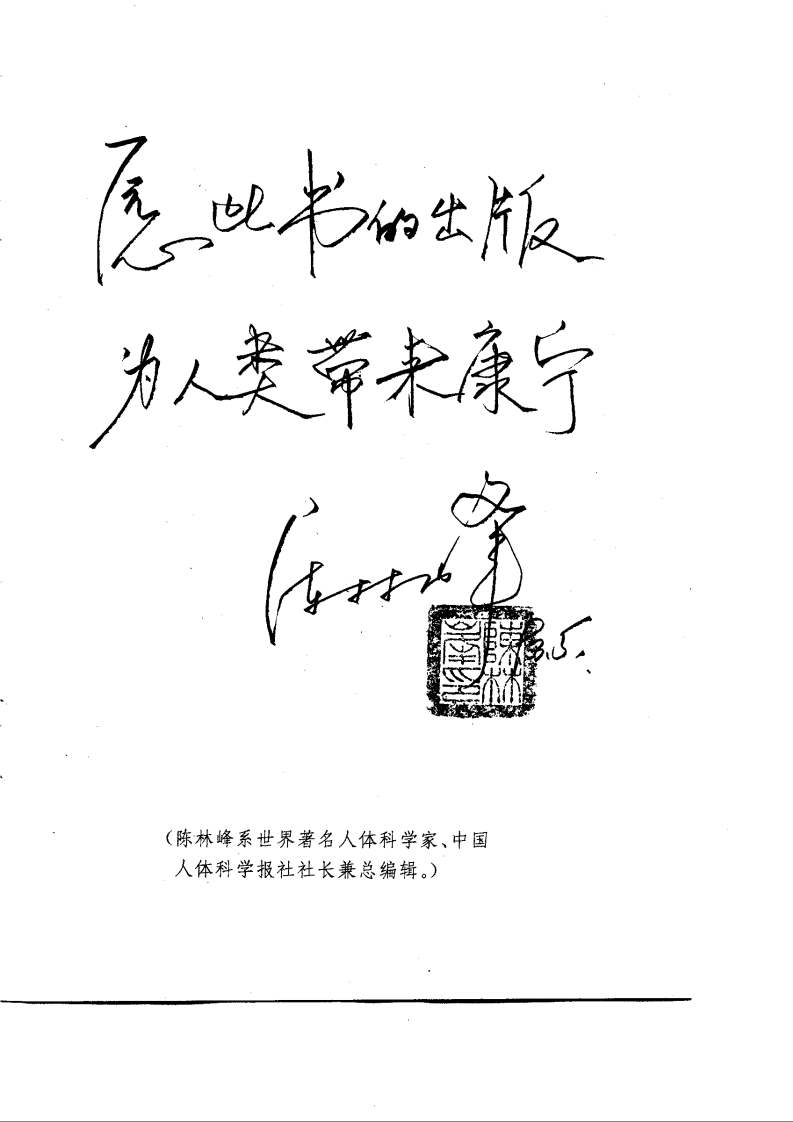 愿此书的出版
为人类带来康宁
陈林峰
陳林
(陈林峰系世界著名人体科学家、中国
人体科学报社社长兼总编辑。)